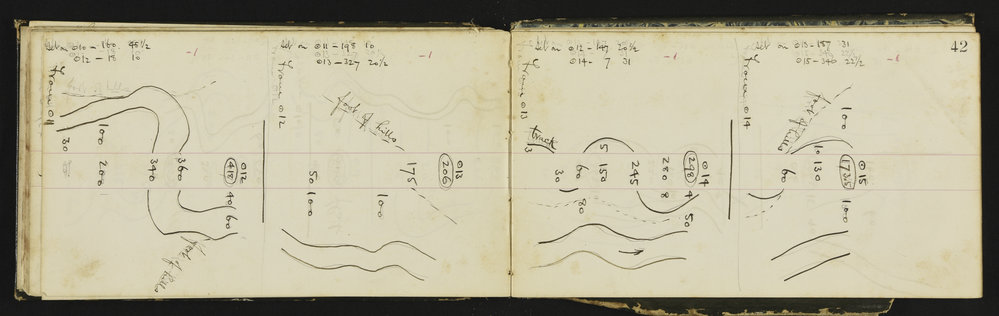 Set on 010 – 160 45½
012 – 18 10
-1
from 011
30
100
200
340
360
012
418
40
60
foot of hills
Set on 011 – 198 10
013 – 327 20½
-1
from 012
foot of hills
50
100
100
175
013
206
Set on 012 – 147 20½
014 – 7 31
-1
from 013
track
3
30
60
80
5
150
245
280
8
014
298
4
50
42
Set on 013 – 187 31
015 – 340 22½
-1
from 014
foot of hills
100
60
10
130
015
173.5
100